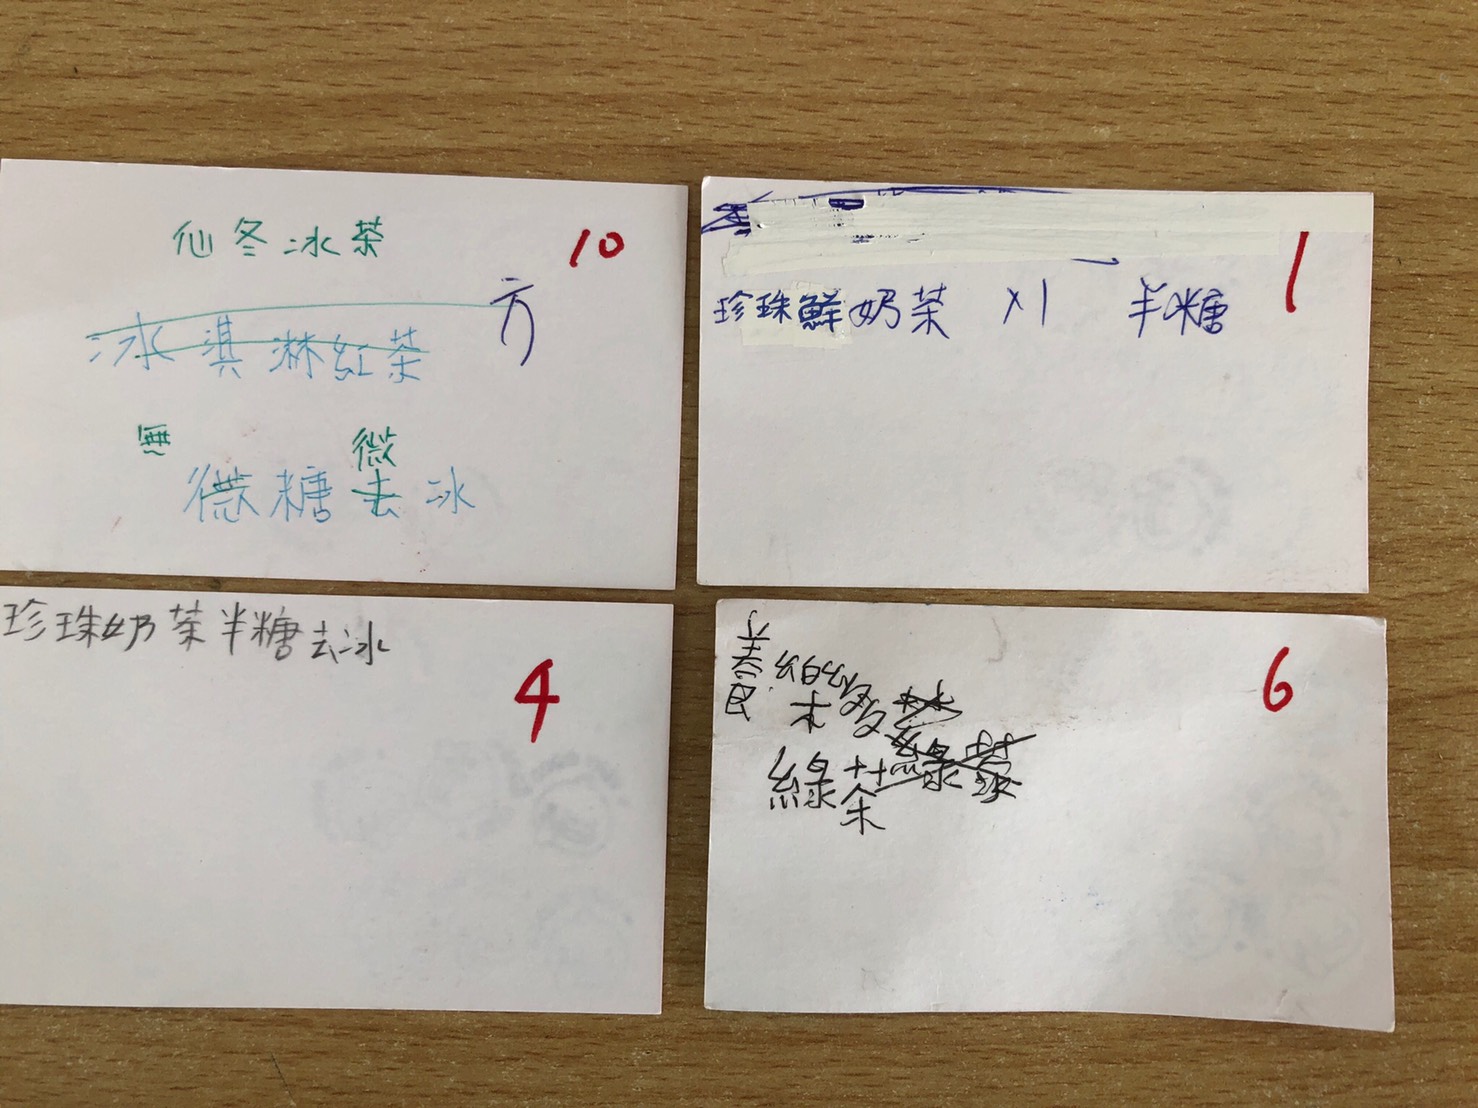 仙冬冰茶
10
冰淇淋紅茶
方
無
微
微糖去冰
1
珍珠鮮奶茶 x1 半糖
珍珠奶茶半糖去冰
4
6
養
多多
綠茶
綠茶